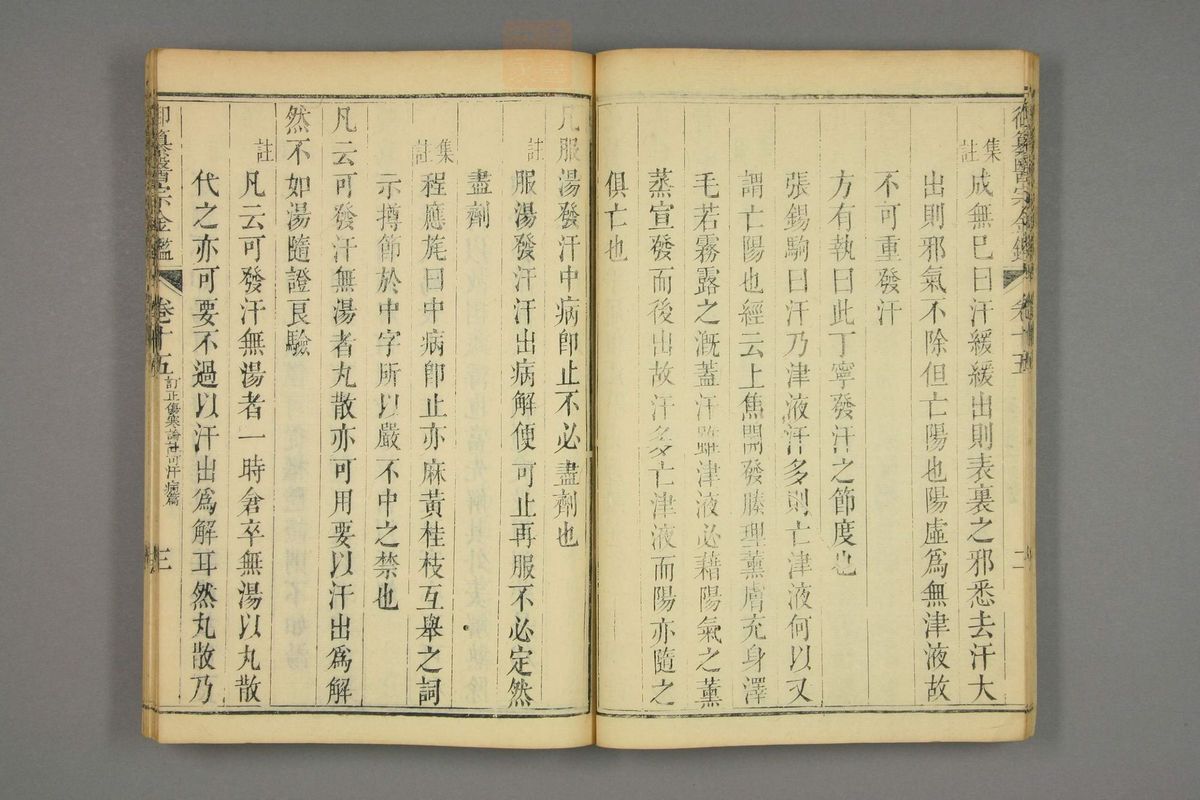 御纂醫宗金鑑 卷十五 二
集註
成無已曰汗緩緩出則表裏之邪悉去汗大
出則邪氣不除但亡陽也陽虛爲無津液故
不可重發汗
方有執曰此丁寧發汗之節度也
張錫駒曰汗乃津液汗多則亡津液何以又
謂亡陽也經云上焦開發腠理薰膚充身澤
毛若霧露之溉蓋汗雖津液必藉陽氣之薰
蒸宣發而後出故汗多亡津液而陽亦隨之
俱亡也
凡服湯發汗中病卽止不必盡劑也
註
服湯發汗汗出病解便可止再服不必定然
盡劑
集註
程應旄曰中病卽止亦麻黃桂枝互舉之詞
示撙節於中字所以嚴不中之禁也
凡云可發汗無湯者丸散亦可用要以汗出爲解
然不如湯隨證良驗
註
凡云可發汗無湯者一時倉卒無湯以丸散
代之亦可要不過以汗出爲解耳然丸散乃
御纂醫宗金鑑 卷十五 訂正傷寒論註可汗病篇 三